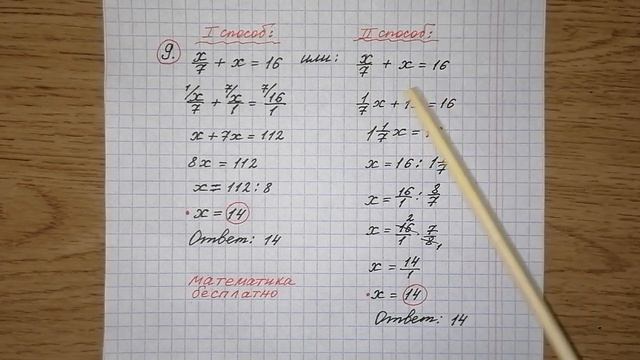 I способ:
9. x/7 + x = 16
1/ x/7 + 7/ x/1 = 7/ 16/1
x + 7x = 112
8x = 112
x = 112 : 8
• x = 14
Ответ: 14
математика
бесплатно
или:
II способ:
x/7 + x = 16
1/7 x + 1 = 16
1 1/7 x =
x = 16 : 1 1/7
x = 16/1 : 8/7
x = 16/1 · 7/8 2 1
x = 14/1
• x = 14
Ответ: 14